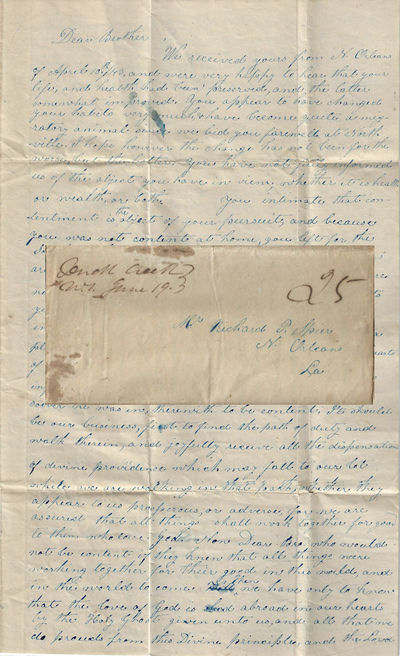 Dear Brother
We received yours from N. Orleans
of April 18th/43, and were very happy to hear that your
life, and health had been preserved, and, the latter
somewhat improved. You appear to have changed
your habits very much & have become quite a mig-
ratory animal since we bid you farewell at North
ville. I hope however the change has not been for the
worse, but the better. You have not yet informed
us of the object you have in view, whether it is health
or wealth, or both. you intimate that con-
tentment is the object of your pursuit, and because
you was not content at home, you left for the
Conott Creek
June 19
25
Mr Richard P. Spier
N. Orleans
La
ever he was in, therewith to be content. It should
be our business, first to find the path of duty and
walk therein, and joyfully receive all the dispensation
of divine providence which may fall to our lot
while we are walking in that path, whether they
appear to us prosperous, or adverse, for we are
assured that all things shall work together for good
to them who love god. Now Dear Bro. who would
not be content if they knew that all things were
working together for their good in this world, and
in the world to come. Then we have only to know
that the love of God is shed abroad in our hearts
by the Holy Ghost given unto us, and all that we
do proceeds from this Divine principle, and the Lord